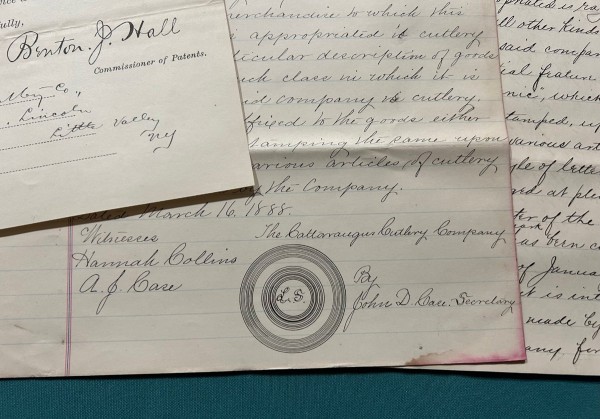 fully,
Benton J. Hall
Commissioner of Patents.
Co.,
Lincoln
Little Valley
NY
merchandise to which this
is appropriated is cutlery
ticular description of goods
such class in which it is
said company is cutlery.
ffixed to the goods either
stamping the same upon
various articles of cutlery
by the Company.
March 16. 1888.
Witnesses
Hannah Collins
A. J. Case
The Cattaraugus Cutlery Company
L. S.
By
John D. Case, Secretary
is
all other kinds
said compan
nic", which
tamped, up
various art
yle of lette
ed at plea
ter of the
mark
as been c
of Januar
it is int
made by
any. fir